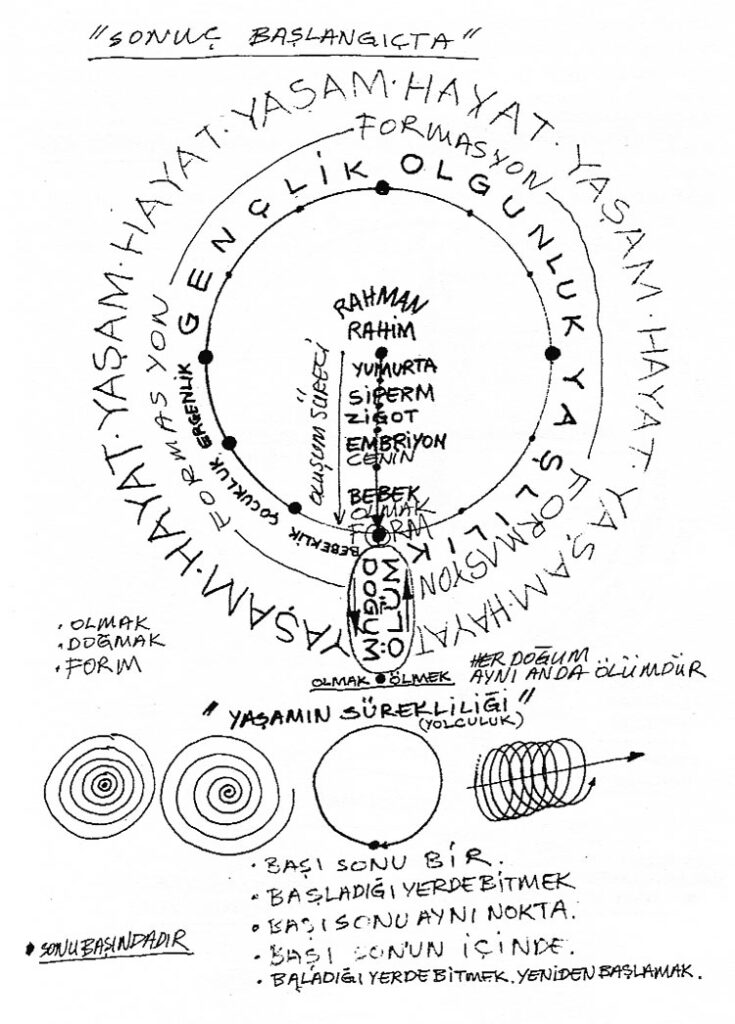 "SONUÇ BAŞLANGIÇTA"
YAŞAM · HAYAT · YAŞAM · HAYAT · YAŞAM · HAYAT · YAŞAM · HAYAT · YAŞAM · HAYAT · YAŞAM · HAYAT
FORMASYON
FORMASYON
FORMASYON
BEBEKLİK ÇOCUKLUK ERGENLİK GENÇLİK OLGUNLUK YAŞLILIK
RAHMAN
RAHİM
OLUŞUM SÜRECİ
YUMURTA
SİPERM
ZİGOT
EMBRİYON
CENİN
BEBEK
OLMAK
FORM
DOĞUM
ÖLÜM
· OLMAK
· DOĞMAK
· FORM
OLMAK · ÖLMEK
HER DOĞUM
AYNI ANDA ÖLÜMDÜR
"YAŞAMIN SÜREKLİLİĞİ"
(YOLCULUK)
· BAŞI SONU BİR.
· BAŞLADIĞI YERDE BİTMEK
· BAŞI SONU AYNI NOKTA.
· BAŞI SON'UN İÇİNDE.
· SONU BAŞINDADIR
· BAŁADIĞI YERDE BİTMEK. YENİDEN BAŞLAMAK.